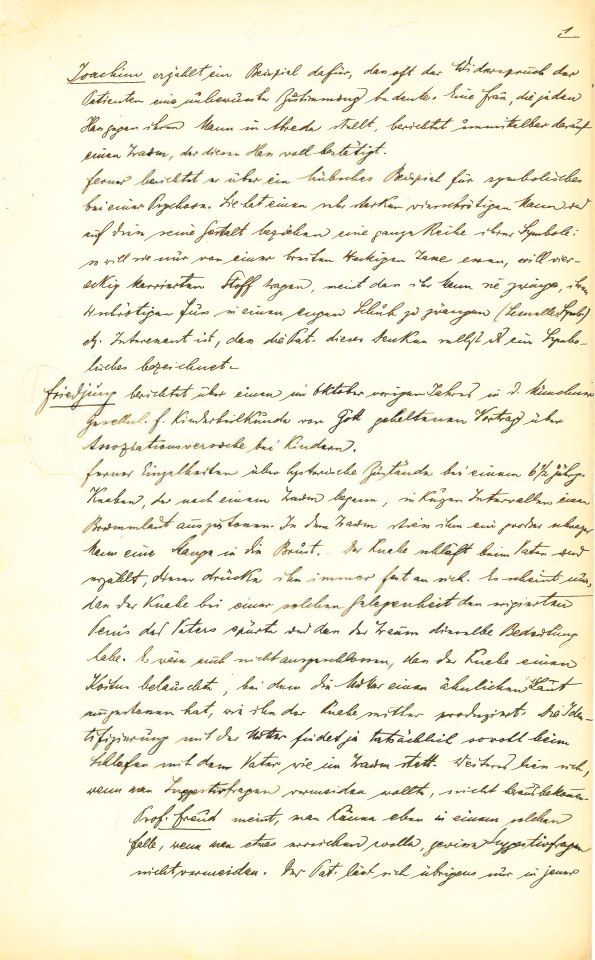 1
Joachim erzählt ein Beispiel dafür, dass oft der Widerspruch der
Patienten eine unbewusste Zustimmung bedeute. Eine Frau, die jeden
Hass gegen ihren Mann in Abrede stellt, berichtet unmittelbar darauf
einen Traum, der diesen Hass voll bestätigt.
Ferner berichtet er über ein hübsches Beispiel für symbolisches
bei einer Psychose. Sie hat einen sehr starken vierschrötigen Mann und
auf dessen seine Gestalt beziehen eine ganze Reihe ihrer Symbole:
so will sie nur von einer breiten eckigen Tasse essen, will vier-
eckig karrierten Stoff tragen, meint dass ihr Mann sie zwinge, ihren
Fuss in einen engen Schuh zu zwängen
etz. Interessant ist, dass die Pat. dieses Denken selbst als ein Symbo-
lisches bezeichnet.
Friedjung berichtet über einen im Oktober vorigen Jahres in d. Münchner
Gesellsch. f. Kinderheilkunde von Gött gehaltenen Vortrag über
Assoziationsversuche bei Kindern.
Ferner Einzelheiten über hysterische Zustände bei einem 6½ jährg.
Knaben, der nach einem Traum begann, in kurzen Intervallen einen
Brummlaut auszustossen. In dem Traum stiess ihm ein grosser schwarzer
Mann eine Stange in die Brust. Der Knabe schläft beim Vater und
erzählt, dieser drücke ihn immer fest an sich. Es scheint nun,
dass der Knabe bei einer solchen Gelegenheit den erigierten
Penis des Vaters spürte und dass der Traum dieselbe Bedeutung
habe. Es wäre auch nicht ausgeschlossen, dass der Knabe einen
Koitus belauschte, bei dem die Mutter einen ähnlichen Laut
ausgestossen hat, wie ihn der Knabe selber produziert. Die Iden-
tifizierung mit der Mutter findet ja tatsächlich sowohl beim
Schlafen mit dem Vater wie im Traum statt. Weiteres liess sich,
wenn man Suggestivfragen vermeiden wollte, nicht herausbekommen.
Prof. Freud meint, man könne eben in einem solchen
Falle, wenn man etwas erreichen wolle, gewisse Suggestivfragen
nicht vermeiden. Der Pat. lässt sich übrigens nur in jener